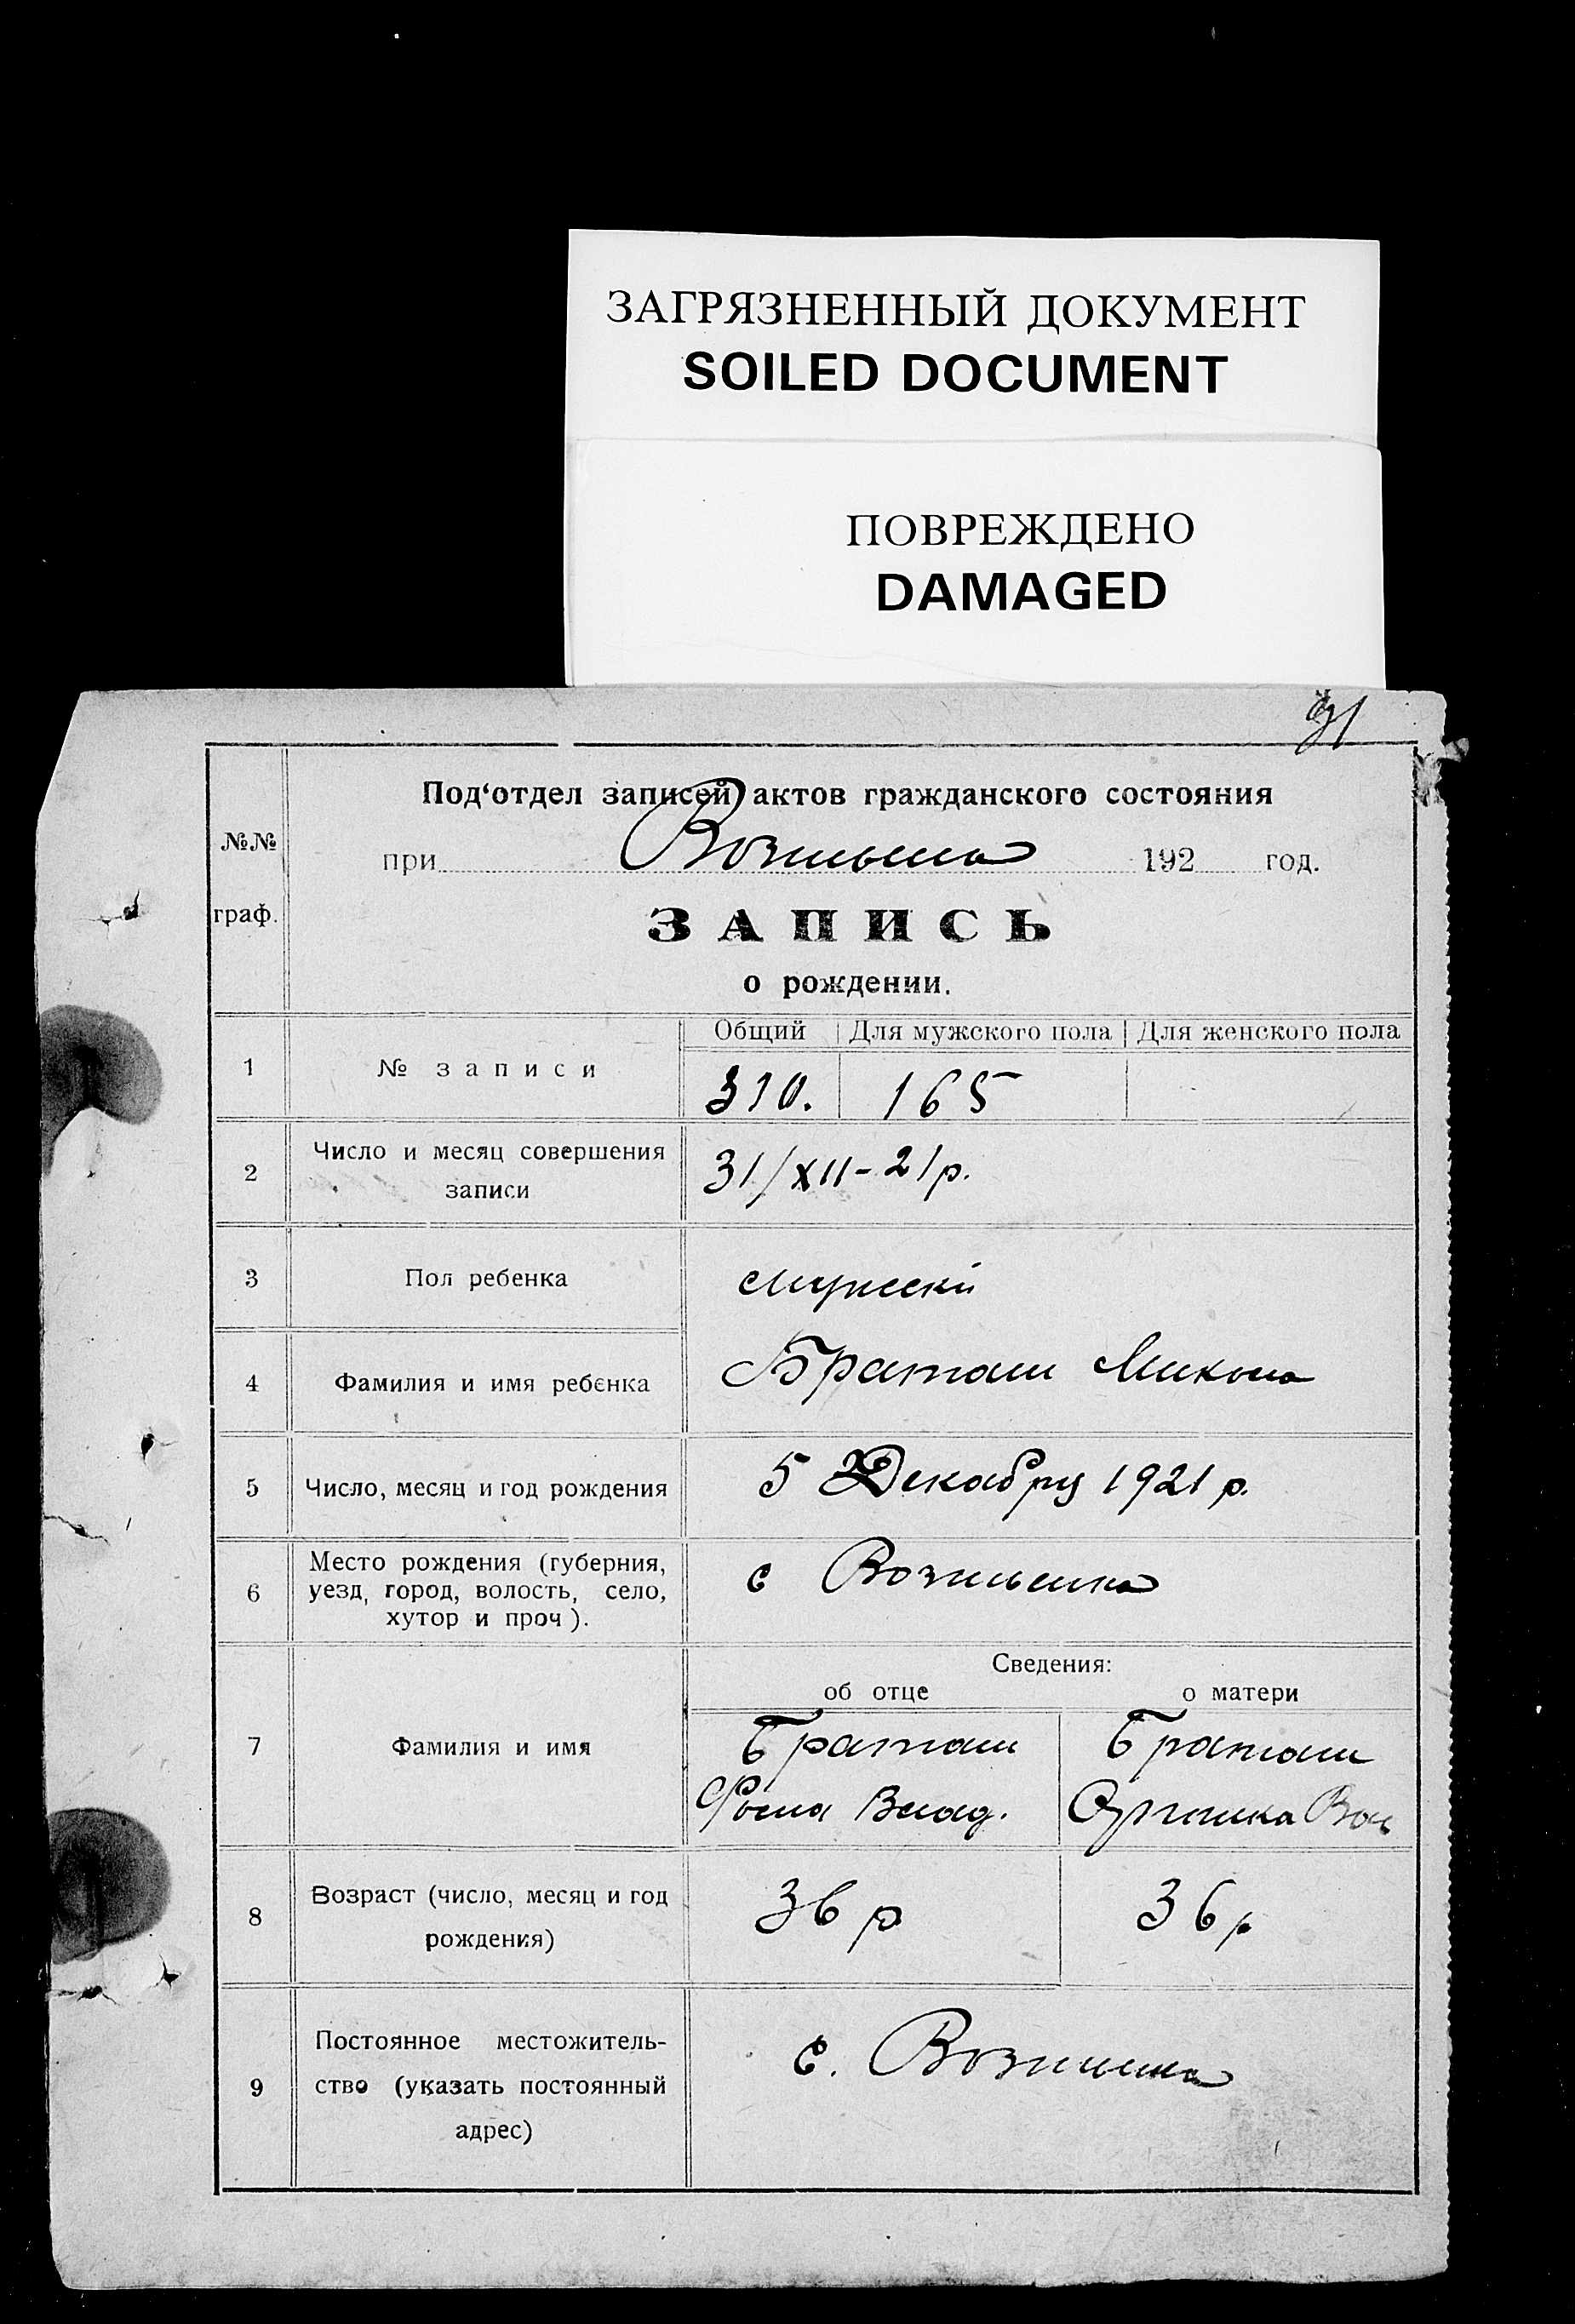 ЗАГРЯЗНЕННЫЙ ДОКУМЕНТ
SOILED DOCUMENT
ПОВРЕЖДЕНО
DAMAGED
Под‘отдел записей актов гражданского состояния
№№
при 192 год.
граф.
ЗАПИСЬ
о рождении.
Общий Для мужского пола Для женского пола
1 № записи 310. 165
2 Число и месяц совершения
записи
31/XII-21 р.
3 Пол ребенка
4 Фамилия и имя ребенка Браташ Микола
5 Число, месяц и год рождения 5 Декабру 1921 р.
6 Место рождения (губерния,
уезд, город, волость, село,
хутор и проч).
с
Сведения:
об отце о матери
7 Фамилия и имя
Браташ Браташ
Фома Влад.
8 Возраст (число, месяц и год
рождения)
36 р 36 р
9 Постоянное местожитель-
ство (указать постоянный
адрес)
с.